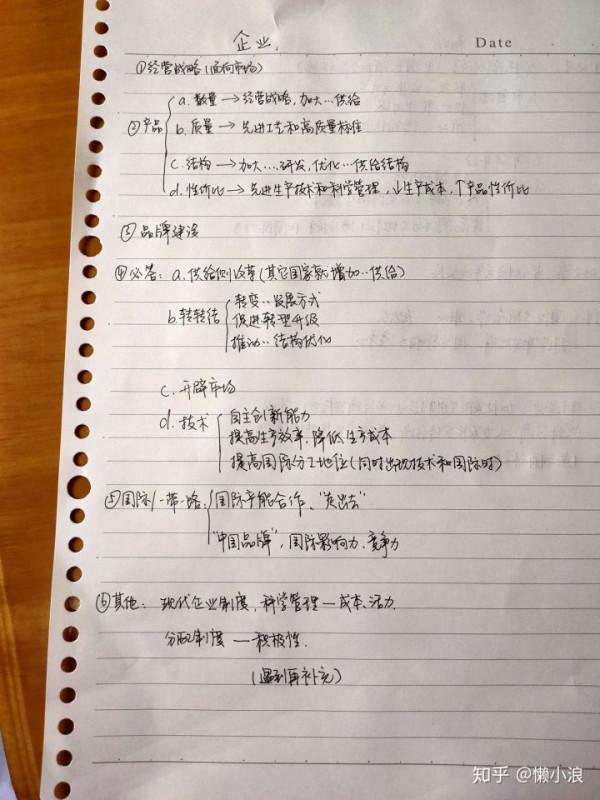 企业.
Date
①经营战略(面向市场)
②产品
a.数量→经营战略,加大…供给
b.质量→先进工艺和高质量标准
c.结构→加大……研发,优化…供给结构
d.性价比→先进生产技术和科学管理,↓生产成本,↑产品性价比
③品牌建设
④必答: a.供给侧改革(其它国家就增加…供给)
b.转转结
转变…发展方式
促进转型升级
推动…结构优化
c.开辟市场
d.技术
自主创新能力
提高生产效率,降低生产成本
提高国际分工地位(同时出现技术和国际时)
⑤国际/一带一路:
国际产能合作、"走出去"
"中国品牌",国际影响力、竞争力
⑥其他: 现代企业制度,科学管理—成本、活力.
分配制度—积极性.
(遇到再补充)
知乎 @懒小浪